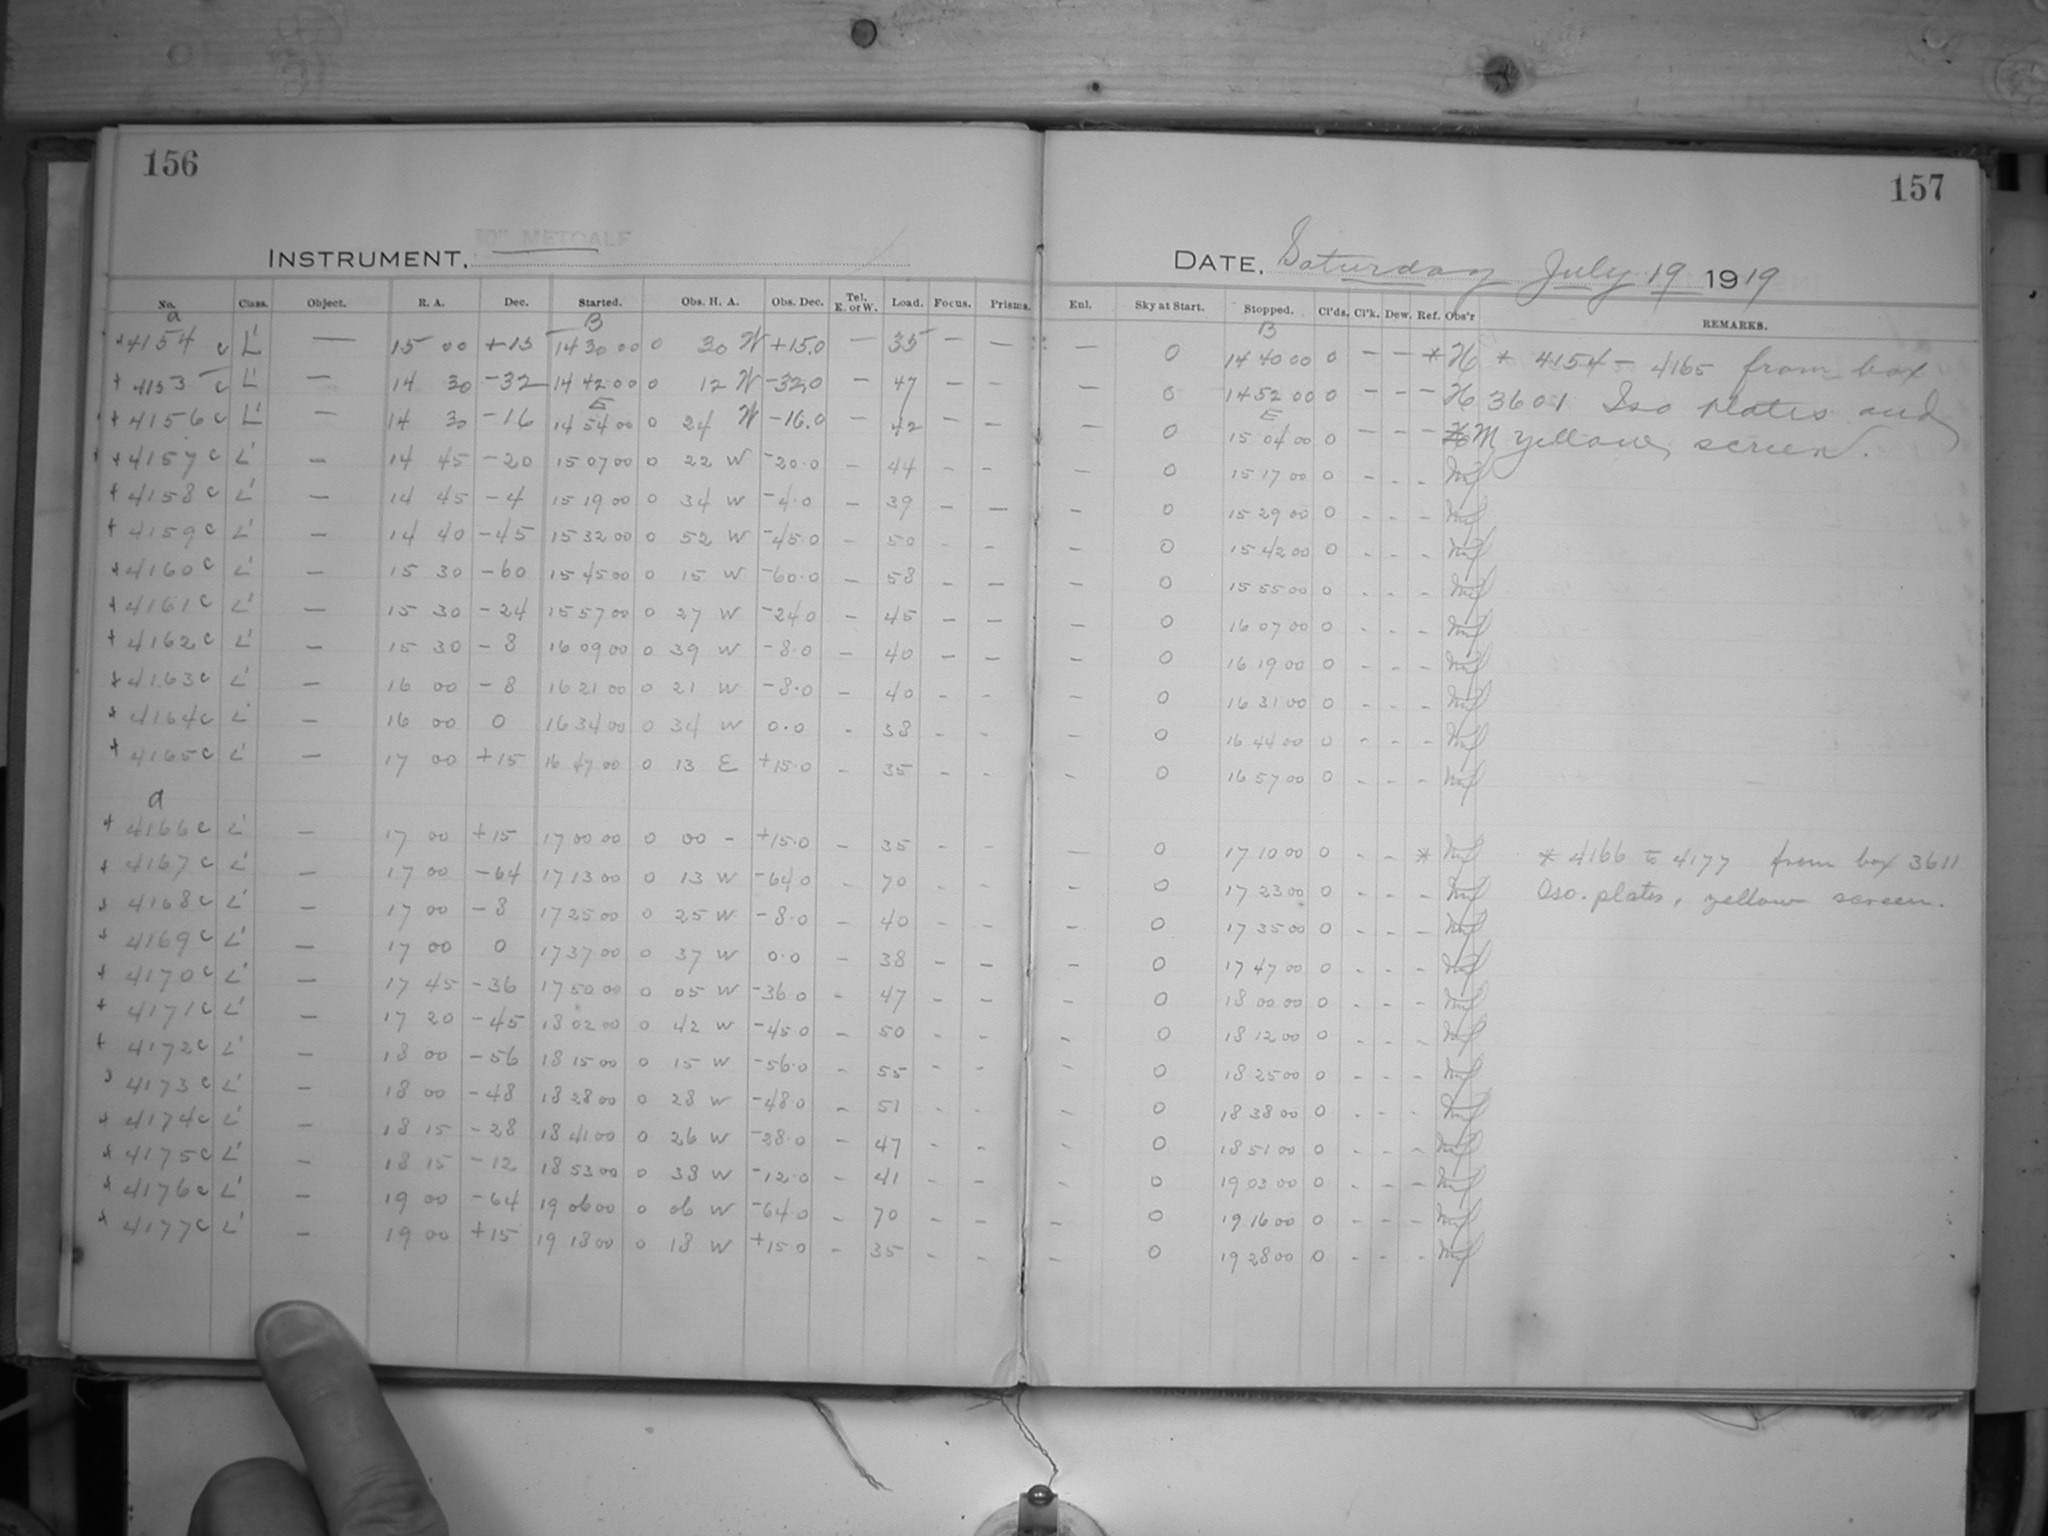 156
157
10" METCALF
INSTRUMENT.
DATE, Saturday July 19 1919
No. Class. Object. R. A. Dec. Started. Obs. H. A. Obs. Dec. Tel. E. or W. Load. Focus. Prisms. Enl. Sky at Start. Stopped. Cl'ds. Cl'k. Dew. Ref. Obs'r REMARKS.
a B B
+4154 c L' — 15 00 +15 14 30 00 0 30 W +15.0 — 35 — — — 0 14 40 00 0 — — * H * 4154 – 4165 from box
+ 4155 c L' — 14 30 -32 14 42 00 0 12 W -32.0 — 47 — — — 0 14 52 00 0 — — — H 3601 Iso plates and
E E
+4156 c L' — 14 30 -16 14 54 00 0 24 W -16.0 — 42 — — — 0 15 04 00 0 — — — M yellow screen.
+4157 c L' — 14 45 -20 15 07 00 0 22 W -20.0 — 44 - - — 0 15 17 00 0 - - -
+4158 c L' — 14 45 -4 15 19 00 0 34 W -4.0 — 39 — — - 0 15 29 00 0 - - -
+4159 c L' — 14 40 -45 15 32 00 0 52 W -45.0 - 50 - - - 0 15 42 00 0 - - -
+4160 c L' — 15 30 -60 15 45 00 0 15 W -60.0 — 58 — — - 0 15 55 00 0 - - -
+4161 c L' — 15 30 -24 15 57 00 0 27 W -24.0 — 45 - — - 0 16 07 00 0 - - -
+4162 c L' — 15 30 -8 16 09 00 0 39 W -8.0 — 40 — — - 0 16 19 00 0 - - -
+4163 c L' — 16 00 -8 16 21 00 0 21 W -8.0 - 40 - - - 0 16 31 00 0 - - -
+4164 c L' — 16 00 0 16 34 00 0 34 W 0.0 - 38 - - - 0 16 44 00 0 - - -
+4165 c L' — 17 00 +15 16 47 00 0 13 E +15.0 - 35 - - - 0 16 57 00 0 - - -
a
+4166 c L' — 17 00 +15 17 00 00 0 00 - +15.0 - 35 - - — 0 17 10 00 0 - - * * 4166 to 4177 from box 3611
+4167 c L' — 17 00 -64 17 13 00 0 13 W -64.0 - 70 - - - 0 17 23 00 0 - - - Iso. plates, yellow screen.
+4168 c L' — 17 00 -8 17 25 00 0 25 W -8.0 - 40 - - - 0 17 35 00 0 - - -
+4169 c L' — 17 00 0 17 37 00 0 37 W 0.0 - 38 — — - 0 17 47 00 0 - - -
+4170 c L' — 17 45 -36 17 50 00 0 05 W -36.0 - 47 - - - 0 18 00 00 0 - - -
+4171 c L' — 17 20 -45 18 02 00 0 42 W -45.0 - 50 - - - 0 18 12 00 0 - - -
+4172 c L' — 18 00 -56 18 15 00 0 15 W -56.0 - 55 - - - 0 18 25 00 0 - - -
4173 c L' — 18 00 -48 18 28 00 0 28 W -48.0 - 51 - - - 0 18 38 00 0 - - -
+4174 c L' — 18 15 -28 18 41 00 0 26 W -28.0 - 47 - - - 0 18 51 00 0 - - -
+4175 c L' — 18 15 -12 18 53 00 0 38 W -12.0 - 41 - - - 0 19 03 00 0 - - -
+4176 c L' — 19 00 -64 19 06 00 0 06 W -64.0 - 70 - - - 0 19 16 00 0 - - -
+4177 c L' — 19 00 +15 19 18 00 0 18 W +15.0 - 35 - - - 0 19 28 00 0 - - -